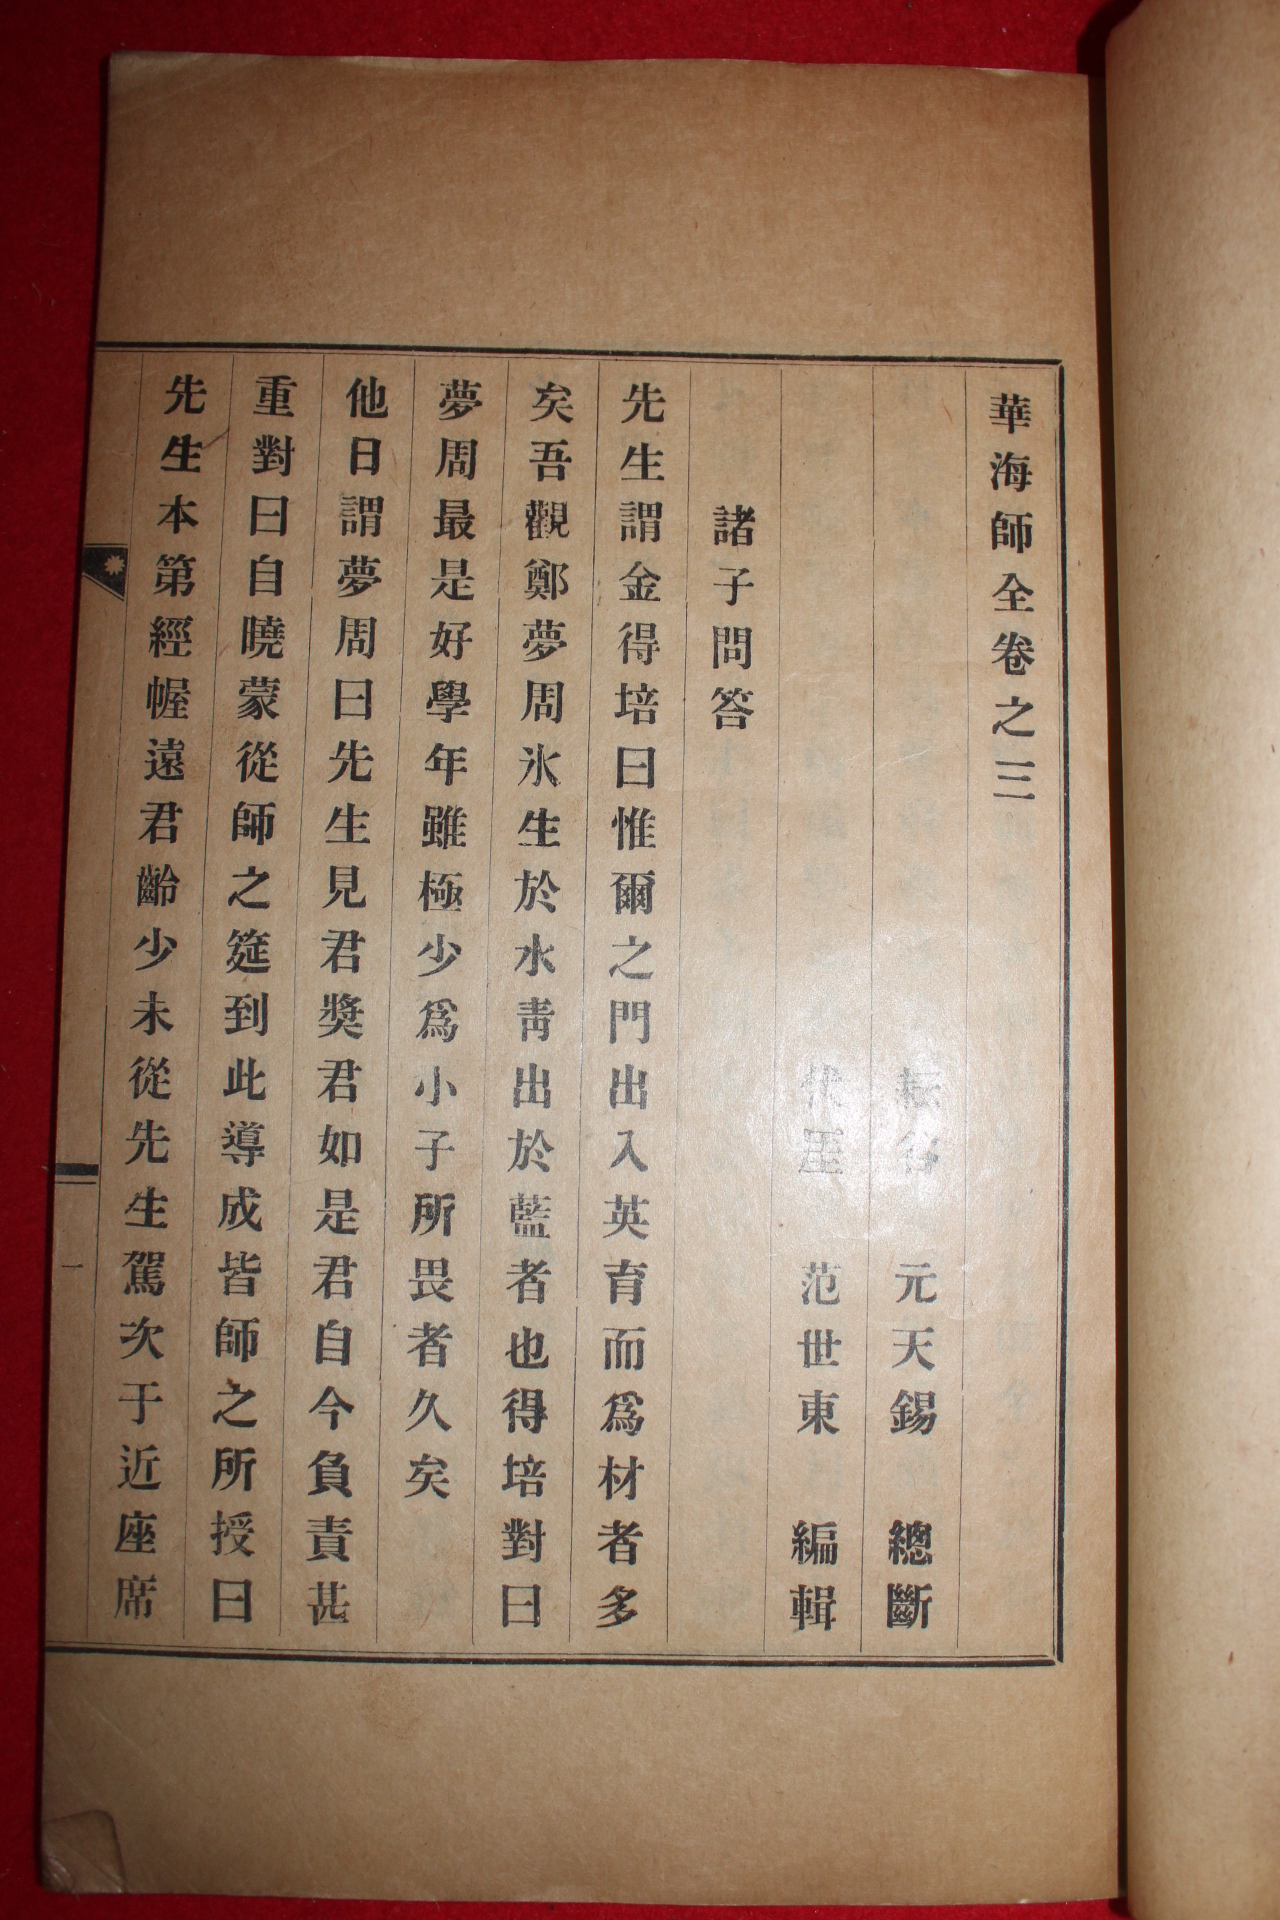 華海師全卷之三
耘谷 元天錫 總斷
伏厓 范世東 編輯
諸子問答
先生謂金得培曰惟爾之門出入英育而爲材者多
矣吾觀鄭夢周氷生於水靑出於藍者也得培對曰
夢周最是好學年雖極少爲小子所畏者久矣
他日謂夢周曰先生見君獎君如是君自今負責甚
重對曰自曉蒙從師之筵到此導成皆師之所授曰
先生本第經幄遠君齡少未從先生駕次于近座席
一